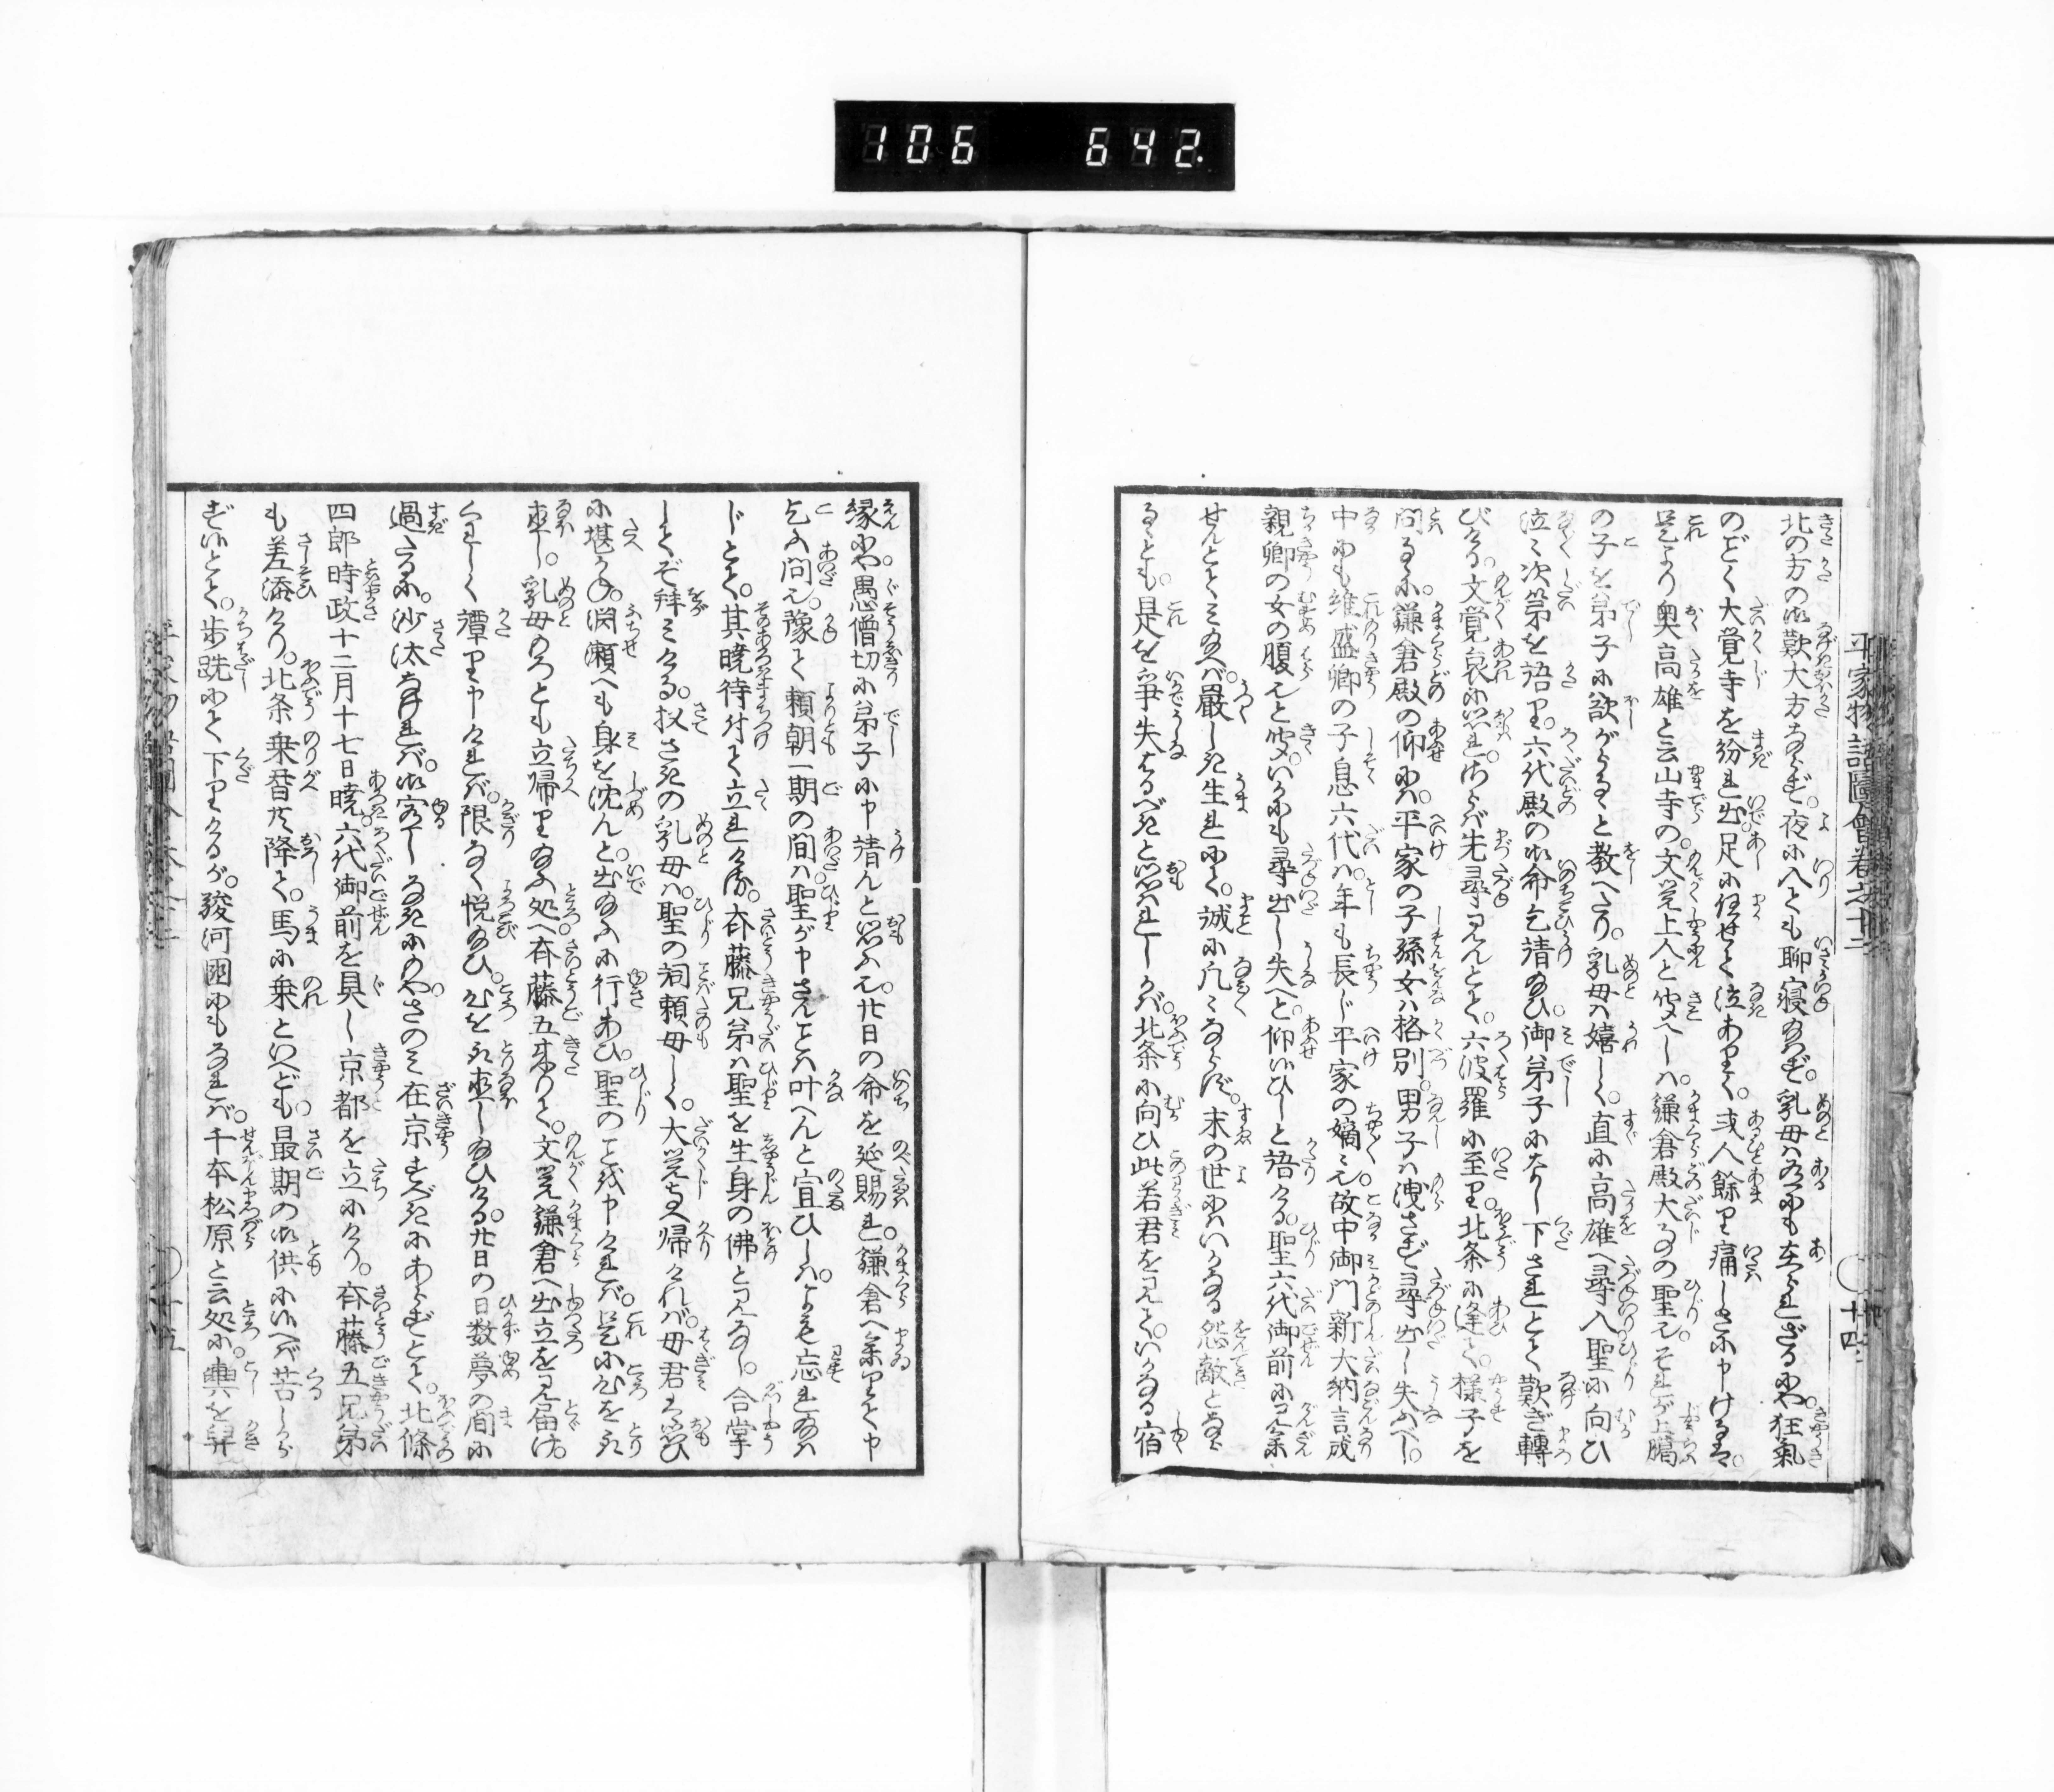 106 642.
平家物語圖會卷之十二
〇廿四
北の方の御歎大方ならず。夜に入とも聊寝給はず。乳母は爲にも在られざるにや狂氣
のごとく大覚寺を紛れ出足に任せて泣ありく。或人餘り痛しさに申けるは。
是より奥高雄と云山寺の。文覚上人と聞へしは。鎌倉殿大事の聖也。それが上臈
の子を弟子に欲がると教へたり。乳母は嬉しく。直に高雄へ尋入聖に向ひ
泣〻次第を語り。六代殿の御命乞請給ひ御弟子になし下されとて歎ぎ轉
びける。文覚哀に思れ。さらば先尋見んとて。六波羅に至り。北条に逢て。様子を
問るに。鎌倉殿の仰には平家の子孫女は格別。男子は洩さず尋出し失ふべし。
中にも維盛卿の子息六代は。年も長じ平家の嫡〻也。故中御門新大納言成
親卿の女の腹也と聞。いかにも尋出し失へと。仰いひしと語ける。聖六代御前に見參
せんとてみ給へば。嚴しき生れにて。誠に凡〻ならず。末の世にはいかなる怨敵とならば
るとも。是を爭失はるべきと思はれしかば。北条に向ひ此若君を見て。いかなる宿
縁にや。愚僧切に弟子に申請んと思ふ也。廿日の命を延賜れ。鎌倉へ參りて申
乞ふ間也。豫て頼朝一期の間は。聖が申さんことは叶へんと宣ひしは。よも忘れ給は
じとて。其曉待付て立れける。斉藤兄弟は聖を生身の佛と見なし。合掌
してぞ拜みける。扨さきの乳母は。聖の詞頼母しく。大覚寺へ帰ければ。母君は思ひ
に堪かね。渕瀬へも身を沈んと。出給ふに行あひ。聖のことば申ければ。是に心を取
直し。乳母のろとも立帰り給ふ処へ斉藤五来りて。文覚鎌倉へ出立を見届け。
くわしく譚り申ければ。限なく悦給ひ。心を取直し給ひける。廿日の日数夢の間に
過たるに。沙汰なければ。御宥しなきにのや。さのミ在京すべきにあらずとて。北條
四郎時政十二月十七日曉。六代御前を具し京都を立にけり。斉藤五兄弟
も差添けり。北条乗替共降て。馬に乗といへども。最期の御供にいへば苦しから
ずいとて。歩跣にて下りけるが。駿河國にもなれば。千本松原と云処に。輿を舁